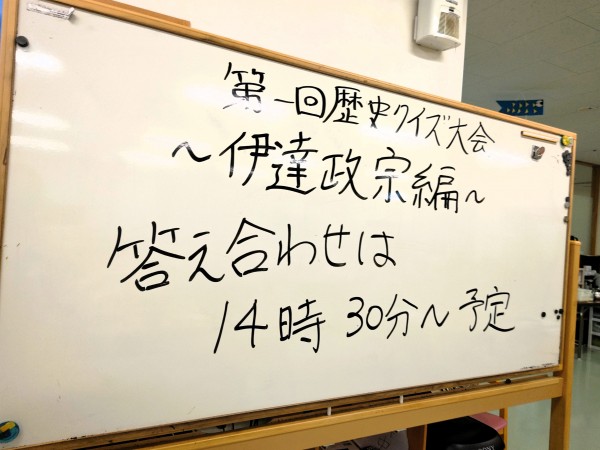 第一回歴史クイズ大会
～伊達政宗編～
答え合わせは
14時30分～予定